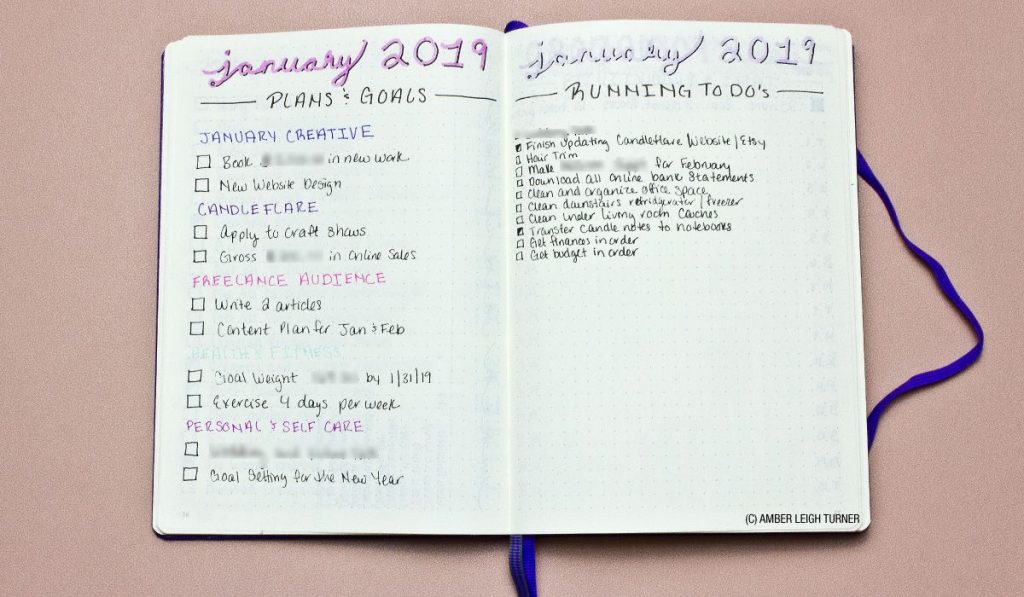 january 2019
PLANS & GOALS
JANUARY CREATIVE
Book in new work
New Website Design
CANDLEFLARE
Apply to craft shows
Gross in Online Sales
FREELANCE AUDIENCE
Write 2 articles
Content Plan for Jan & Feb
HEALTH & FITNESS
Goal Weight by 1/31/19
Exercise 4 days per week
PERSONAL & SELF CARE
Goal Setting for the New Year
january 2019
RUNNING TO DO's
Finish Updating Candleflare Website/Etsy
Hair Trim
Make for February
Download all online bank Statements
Clean and organize office space
Clean downstairs refridgerator/freezer
Clean Under living room Couches
Transfer Candle notes to notebooks
Get finances in order
Get budget in order
(C) AMBER LEIGH TURNER